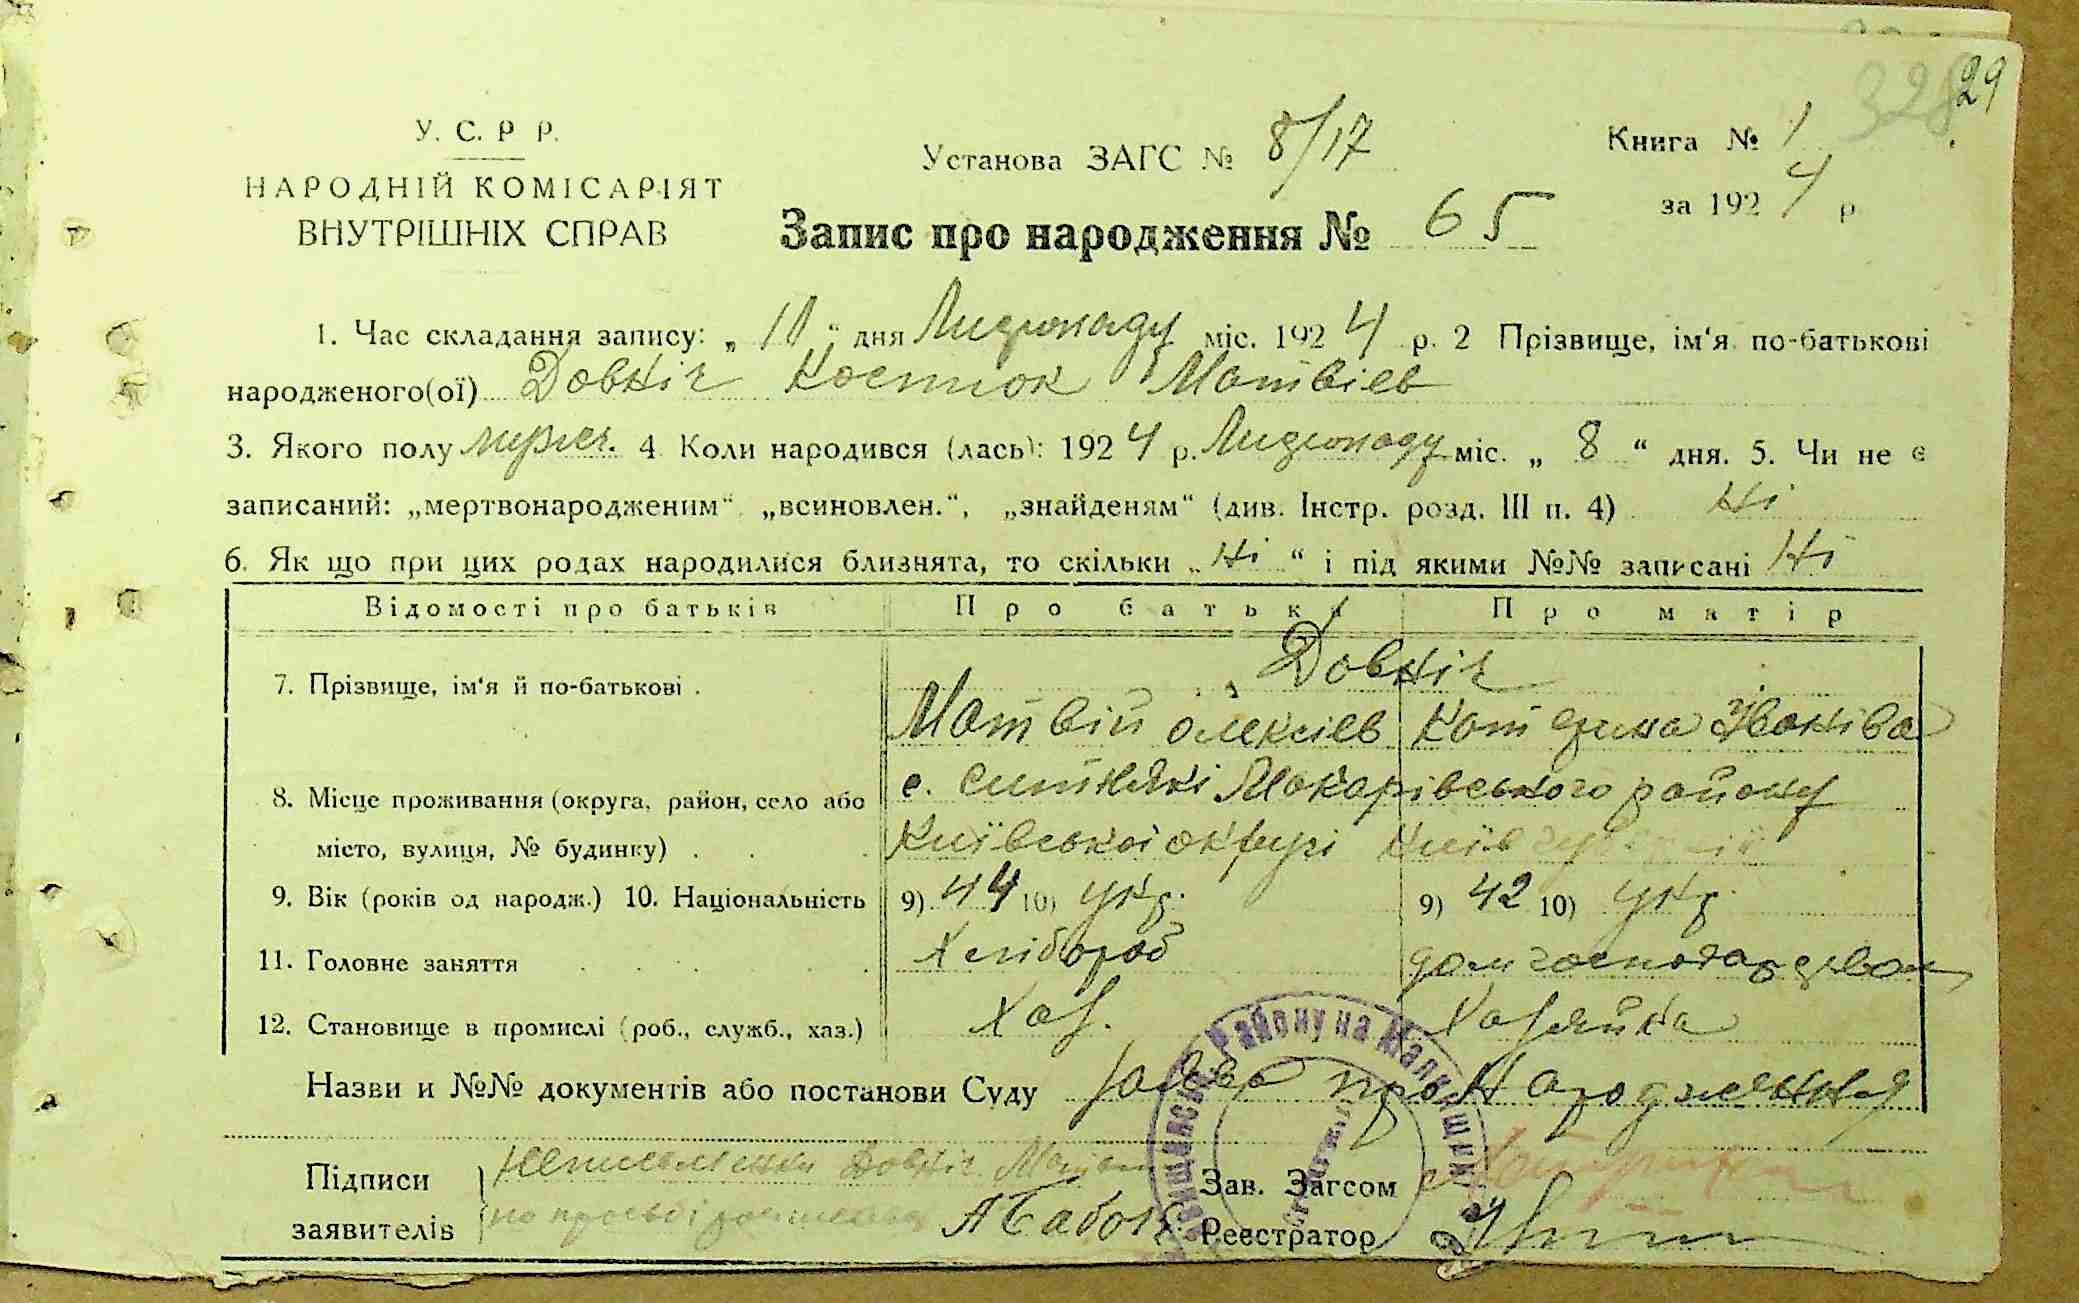 328 29
У. С. Р Р.
НАРОДНІЙ КОМІСАРІЯТ
ВНУТРІШНІХ СПРАВ
Установа ЗАГС № 8/17
Книга № 1
за 1924 р
Запис про народження № 65
1. Час складання запису: „10“ дня Листопаду міс. 1924 р. 2 Прізвище, ім‘я по-батькові
народженого(ої) Довніч Костюк Матвіев
3. Якого полу мужеч. 4 Коли народився (лась): 1924 р. Листопаду міс. „ 8 “ дня. 5. Чи не є
записаний: „мертвонародженим“ „всиновлен.“, „знайденям“ (див. Інстр. розд. III п. 4) Ні
6. Як що при цих родах народилися близнята, то скільки „Ні“ і під якими №№ записані Ні
Відомості про батьків Про батька Про матір
Довніч
7. Прізвище, ім‘я й по-батькові .
Матвій Олексіев Катерина Іванівна
8. Місце проживання (округа, район, село або с. Ситнякі Макарівського району
місто, вулиця, № будинку) . . . Київської округи Київ
9. Вік (років од народж.) 10. Національність 9) 44 10) укр. 9) 42 10) укр
11. Головне заняття . . . . . Хлібороб дом господарством
12. Становище в промислі (роб., служб., хаз.) Хаз. Хазяйка
Назви и №№ документів або постанови Суду заява про Народження
Підписи Неписьменни Довніч Матвій Зав. Загсом
заявителів по просьбі росписався Реєстратор
Району на Малинщині